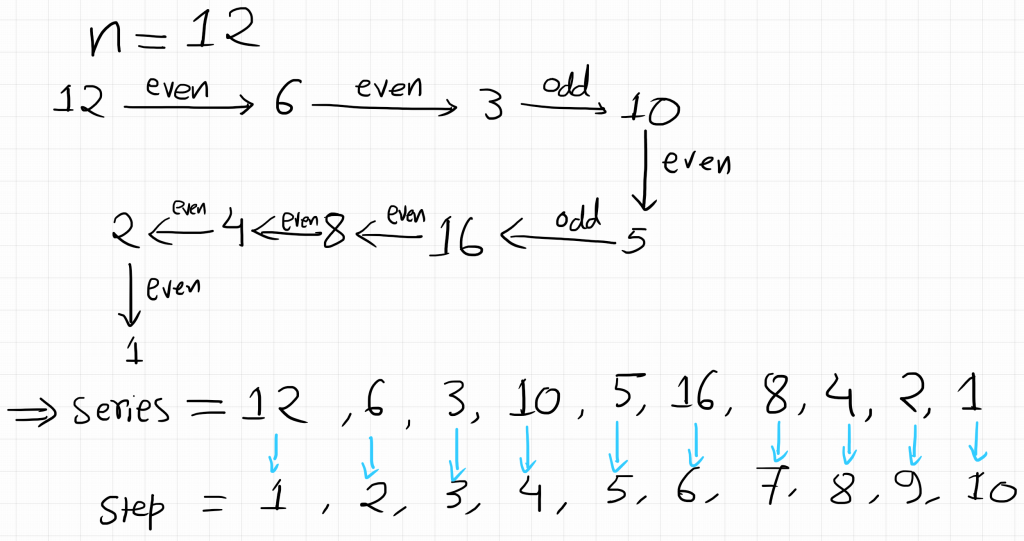 n = 12
12 even → 6 even → 3 odd → 10
even
2 ← even 4 ← even 8 ← even 16 ← odd 5
even
1
⇒ series = 12 , 6 , 3, 10 , 5, 16, 8, 4, 2, 1
step = 1 , 2, 3, 4, 5, 6, 7, 8, 9, 10